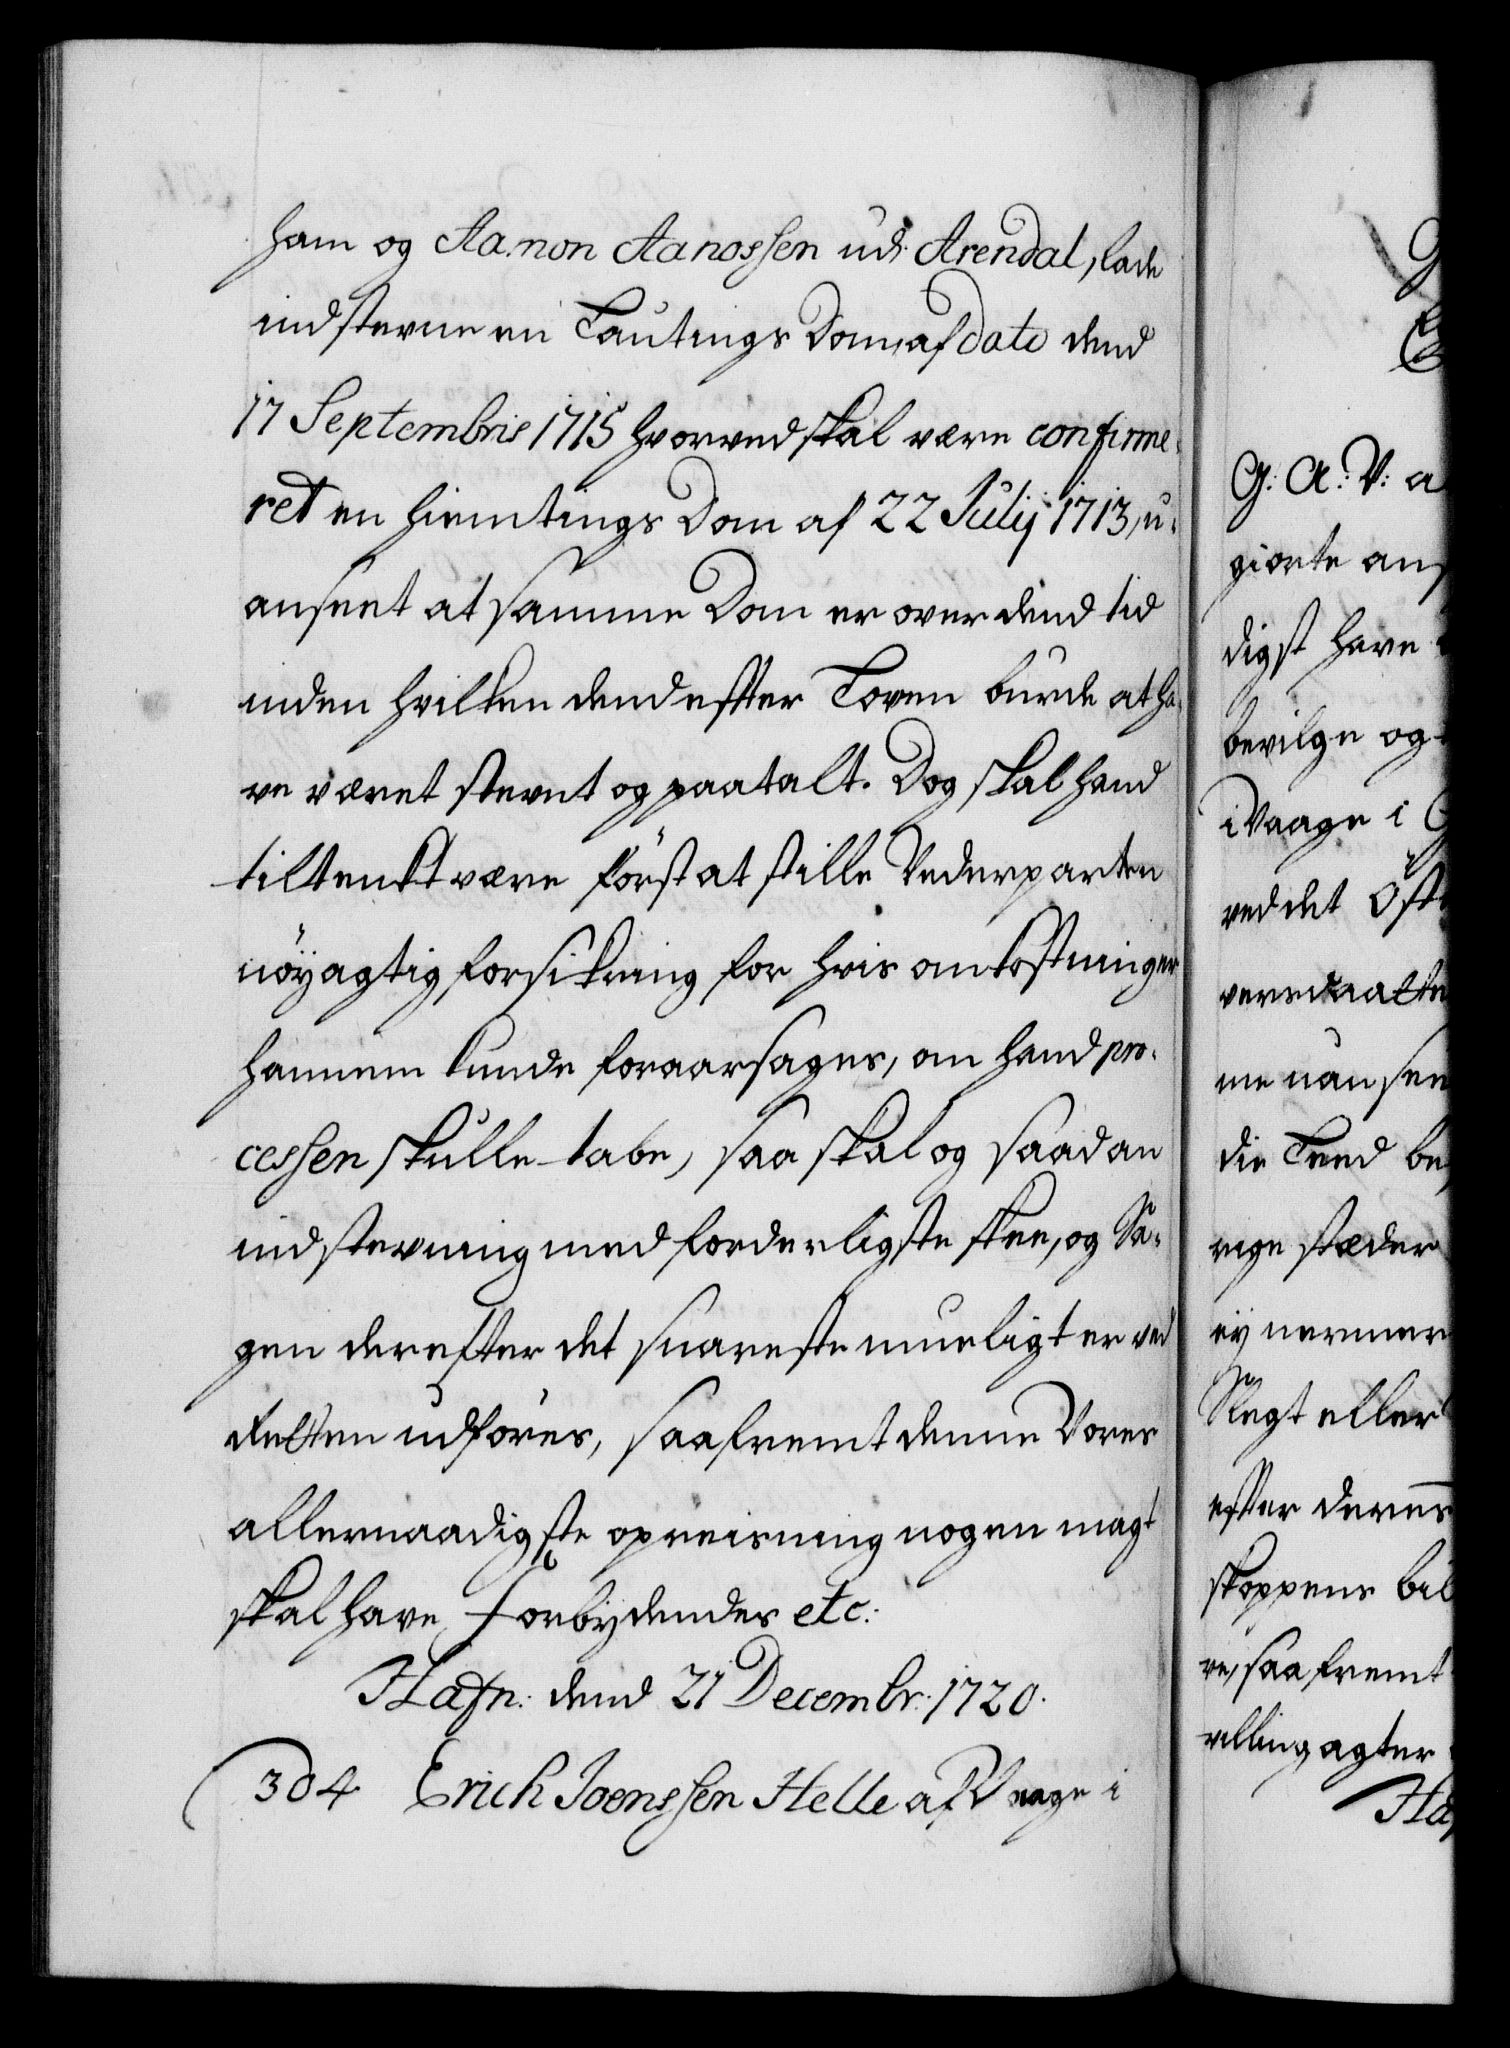 ham og Aanon Aanossen udi Arendal, lade
indstevne en Lautings Dom, af dato dend
17 Septembris 1715 hvorved skal være confirme-
ret en Hiemtings Dom af 22 Julij 1713, u-
anseet at samme Dom er over dend tid
inden hvilken dend efter Loven burde at ha-
ve været stevnt og paatalt. Dog skal hand
tiltenkt være först at stille Vederparten
nöyagtig forsikring for hvis omkostninger
hannem kunde foraarsages, om hand pro-
cessen skulle tabe, saa skal og saadan
indstevning med forderligste skee, og Sa-
gen derefter det snareste mueligt er ved
Retten udföres, saafremt denne Vores
allernaadigste opreisning nogen magt
skal have, Forbydendes etc:
Hafn: dend 21 Decembr: 1720.
304. Erich Joenssen Helle af Vaage i
G: A: V: a
giorte ans
digst have
bevilge og
i Vaage i G
ved det Öst
me uanseet
die Leed be
rige stæder
ey nermer
Slegt eller
efter deres
skoppens bil
re, saafremt
villing agter
Haf